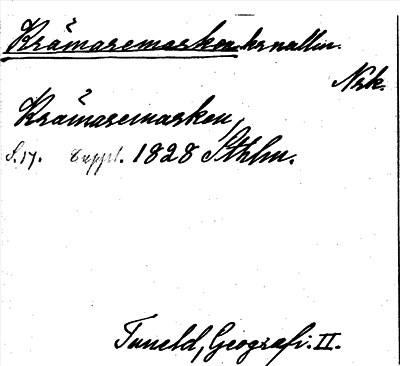 Krämaremarken krnallm.
Nsk.
Krämaremarken,
S.17. Suppl. 1828 Sthlm.
Tuneld, Geografi. II.